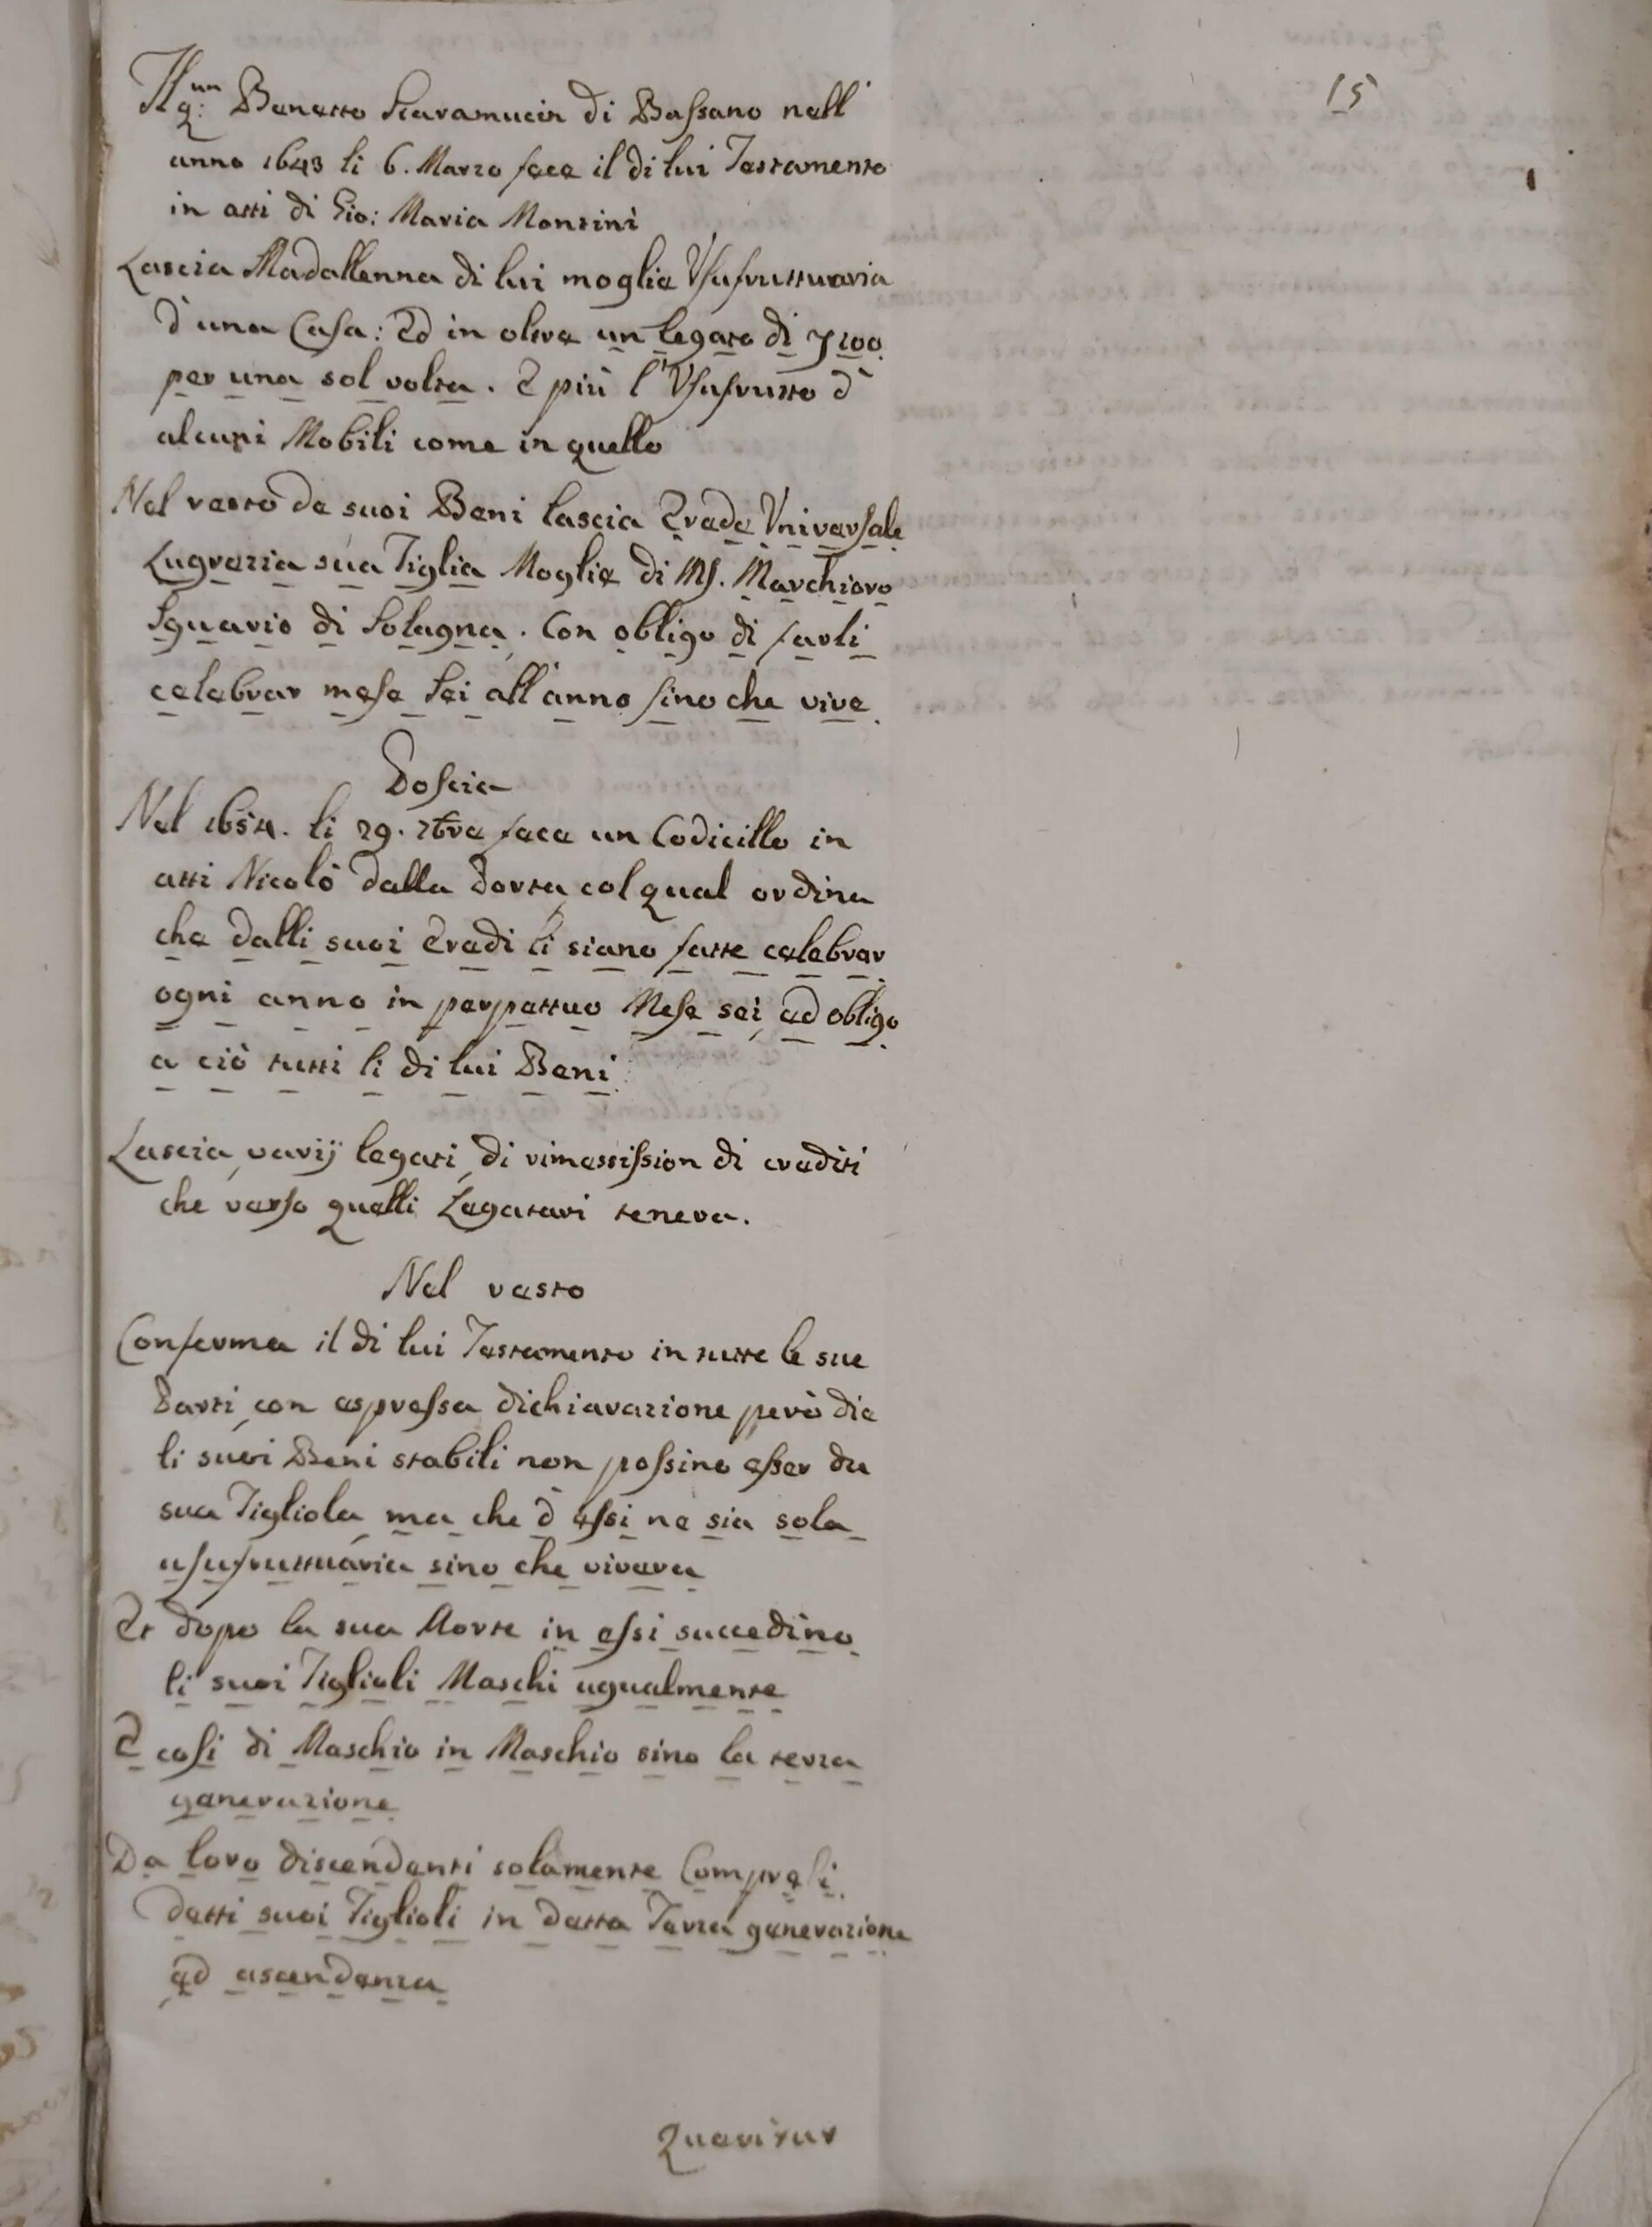 15
Il q: Benetto Scaramucin di Bassano nell'
anno 1643 li 6. Marzo fece il di lui Testamento
in atti di Gio: Maria Montini
Lascia Madallenna di lui moglie Usufruttuaria
d'una Casa: Ed in oltre un legato di 100
per una sol volta. E più l'Usufrutto d'
alcuni Mobili come in quello
Nel resto de suoi Beni lascia Erede Universale
Lugrezia sua Figlia Moglie di Ms. Marchioro
Sguario di Solagna. Con obligo di farli
celebrar mese Sei all'anno sino che vive
Poscia
Nel 1654. li 29. fece un Codicillo in
atti Nicolò dalla Porta, col qual ordina
che dalli suoi Eredi li siano fatte celebrar
ogni anno in perpettuo Mese sei, ed obligo
a ciò tutti li di lui Beni
Lascia varij legati, di rimessission di crediti
che verso quelli Legatari teneva.
Nel resto
Conferma il di lui Testamento in tutte le sue
Parti, con espressa dichiarazione però die
li suoi Beni stabili non possino esser da
sua Figliola, ma che d'essi ne sia sola
usufruttuaria sino che vivera
Et dopo la sua Morte in essi succedino
li suoi Figlioli Maschi ugualmente
E cosi di Maschio in Maschio sino la terza
generazione
Da loro discendenti solamente Compresi
detti suoi Figlioli in detta Terza generazione
ed ascendenza
Queritur